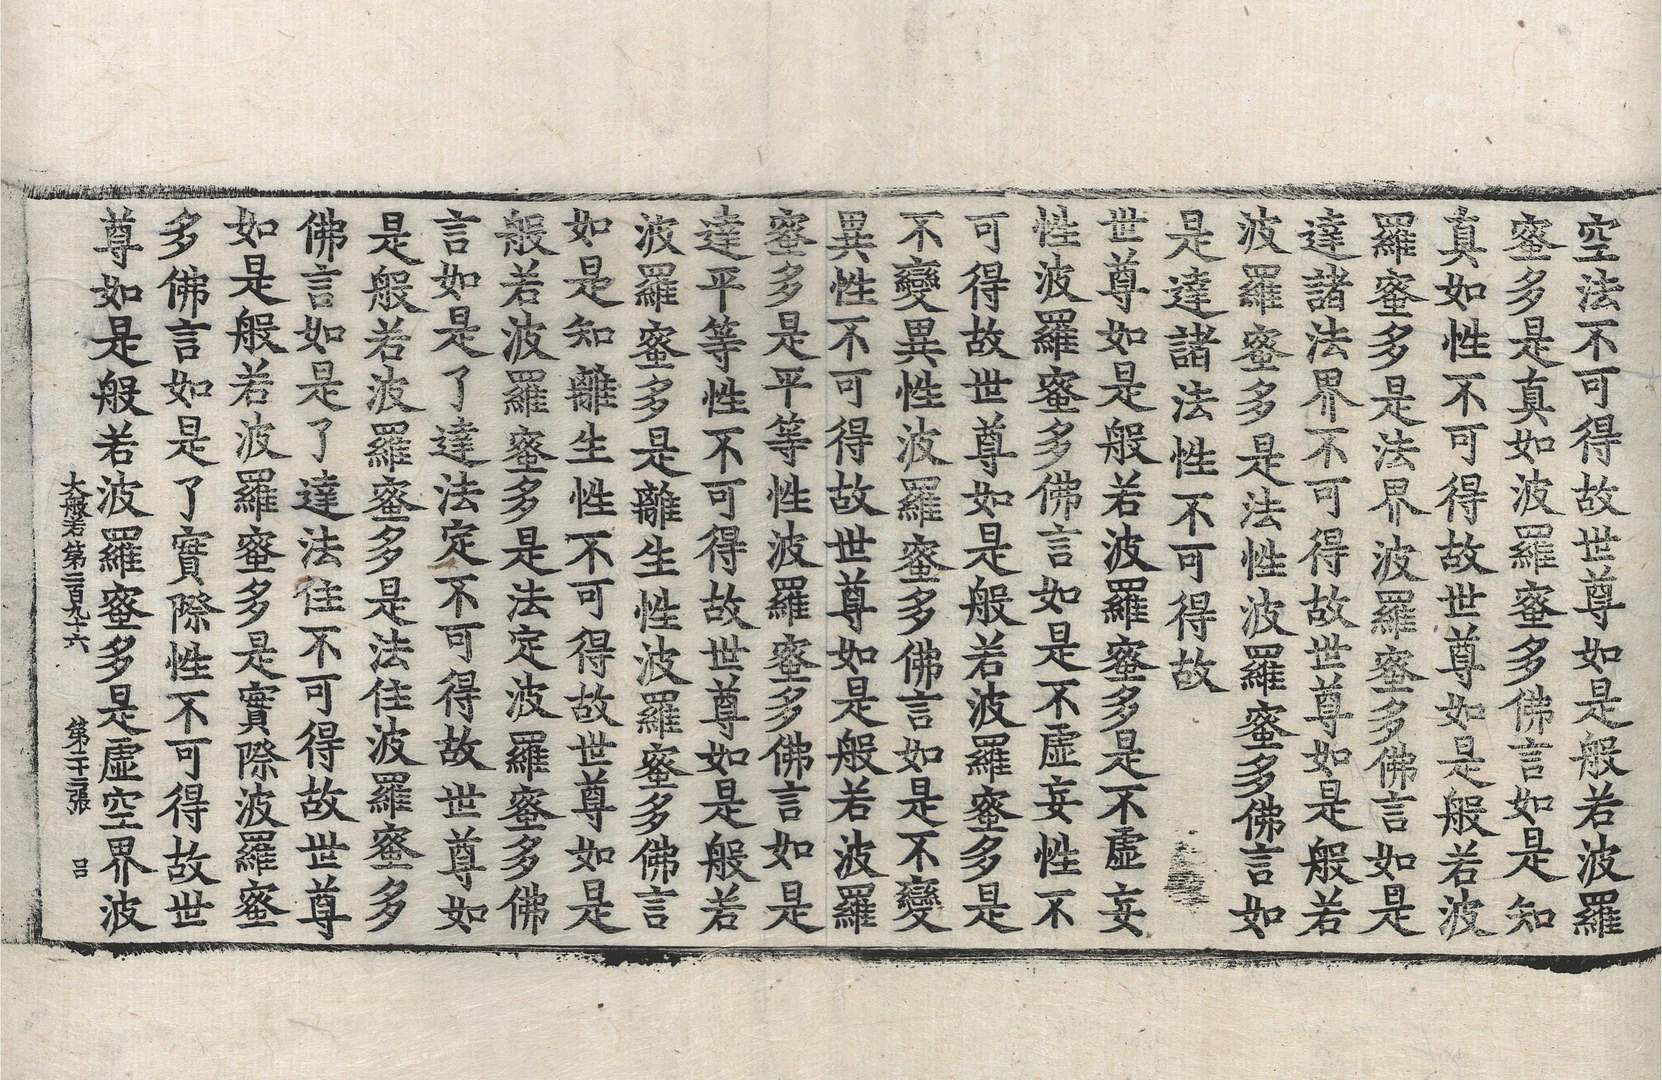 空法不可得故世尊如是般若波羅
蜜多是真如波羅蜜多佛言如是知
真如性不可得故世尊如是般若波
羅蜜多是法界波羅蜜多佛言如是
達諸法界不可得故世尊如是般若
波羅蜜多是法性波羅蜜多佛言如
是達諸法性不可得故
世尊如是般若波羅蜜多是不虛妄
性波羅蜜多佛言如是不虛妄性不
可得故世尊如是般若波羅蜜多是
不變異性波羅蜜多佛言如是不變
異性不可得故世尊如是般若波羅
蜜多是平等性波羅蜜多佛言如是
達平等性不可得故世尊如是般若
波羅蜜多是離生性波羅蜜多佛言
如是知離生性不可得故世尊如是
般若波羅蜜多是法定波羅蜜多佛
言如是了達法定不可得故世尊如
是般若波羅蜜多是法住波羅蜜多
佛言如是了達法住不可得故世尊
如是般若波羅蜜多是實際波羅蜜
多佛言如是了實際性不可得故世
尊如是般若波羅蜜多是虛空界波
大般若第二百九十六 第二十三張 吕